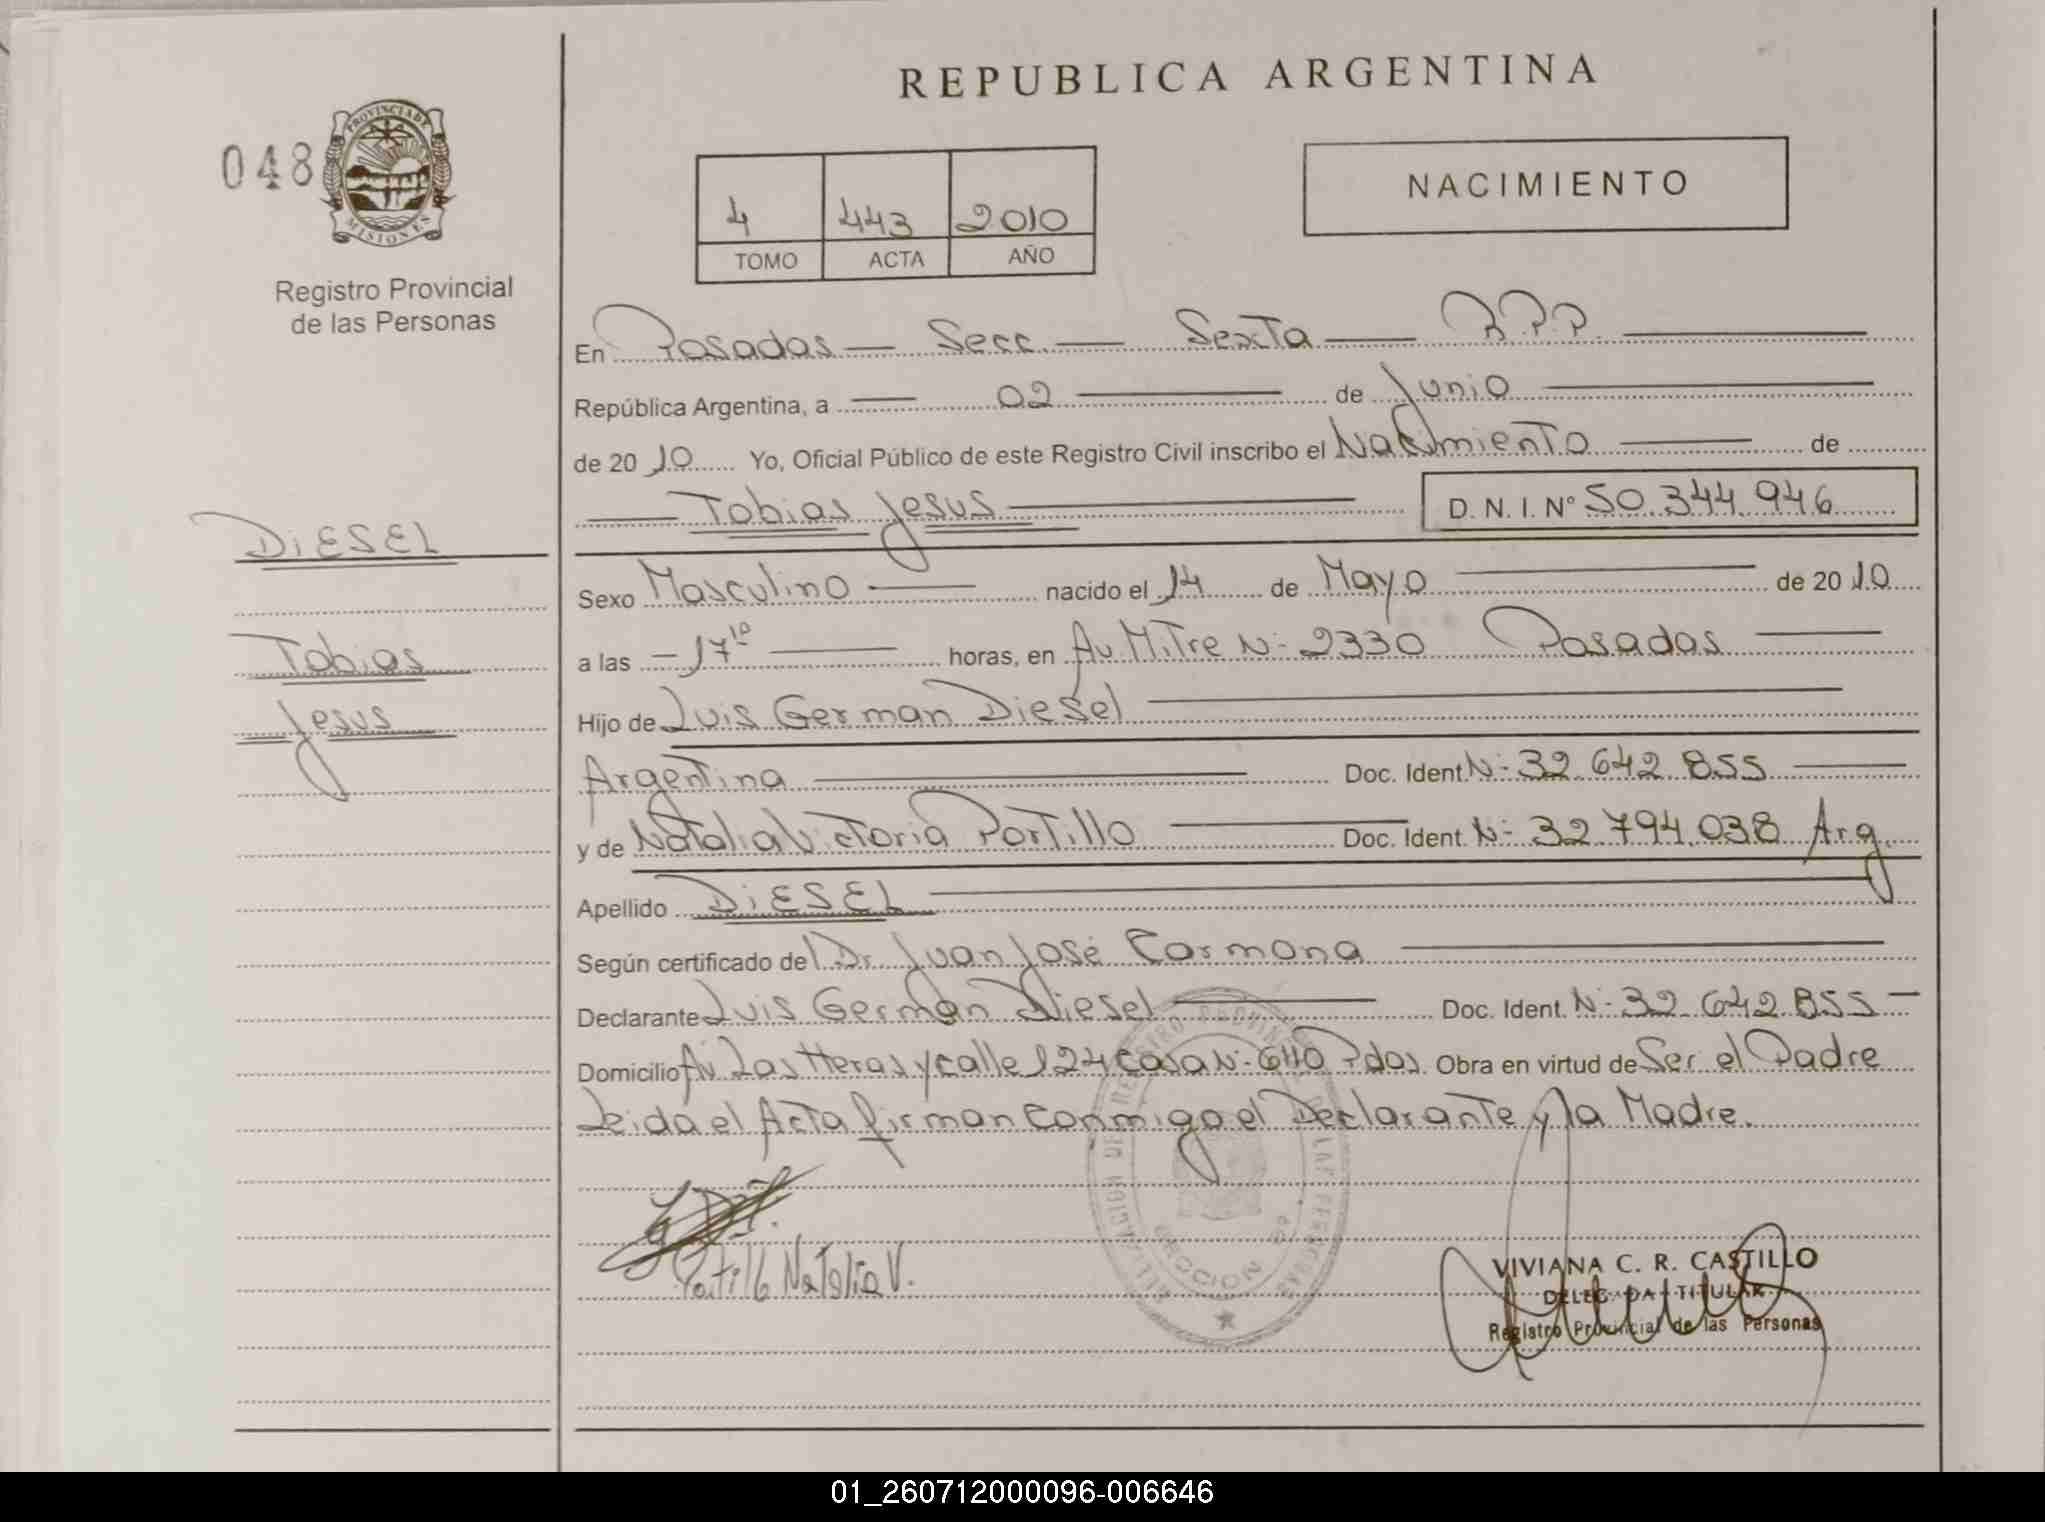 REPUBLICA ARGENTINA
048
PROVINCIA DE
MISIONES
Registro Provincial
de las Personas
4 443 2010
TOMO ACTA AÑO
NACIMIENTO
En Posadas — Secc. — Sexta — R.P.P.
República Argentina, a — 02 — de Junio
de 2010 Yo, Oficial Público de este Registro Civil inscribo el Nacimiento — de
Tobias Jesus — D. N. I. Nº 50.344.946
DiESEL
Tobias
Jesus
Sexo Masculino — nacido el 14 de Mayo — de 2010
a las - 17 10 — horas, en Av. Mitre N- 2330 Posadas —
Hijo de Luis German Diesel —
Argentina — Doc. Ident N- 32.642.855 —
y de Natalia Victoria Portillo — Doc. Ident. N- 32.794.038 Arg.
Apellido DiESEL —
Según certificado del Dr. Juan José Carmona —
Declarante Luis German Diesel — Doc. Ident. N- 32.642.855 —
Domicilio Av. Las Heras y calle 124 casa N- 6410 Pdas. Obra en virtud de Ser el Padre
Leida el Acta firman conmigo el Declarante y la Madre.
Portillo Natalia V.
VIVIANA C. R. CASTILLO
DELEGADA TITULAR
Registro Provincial de las Personas
01_260712000096-006646